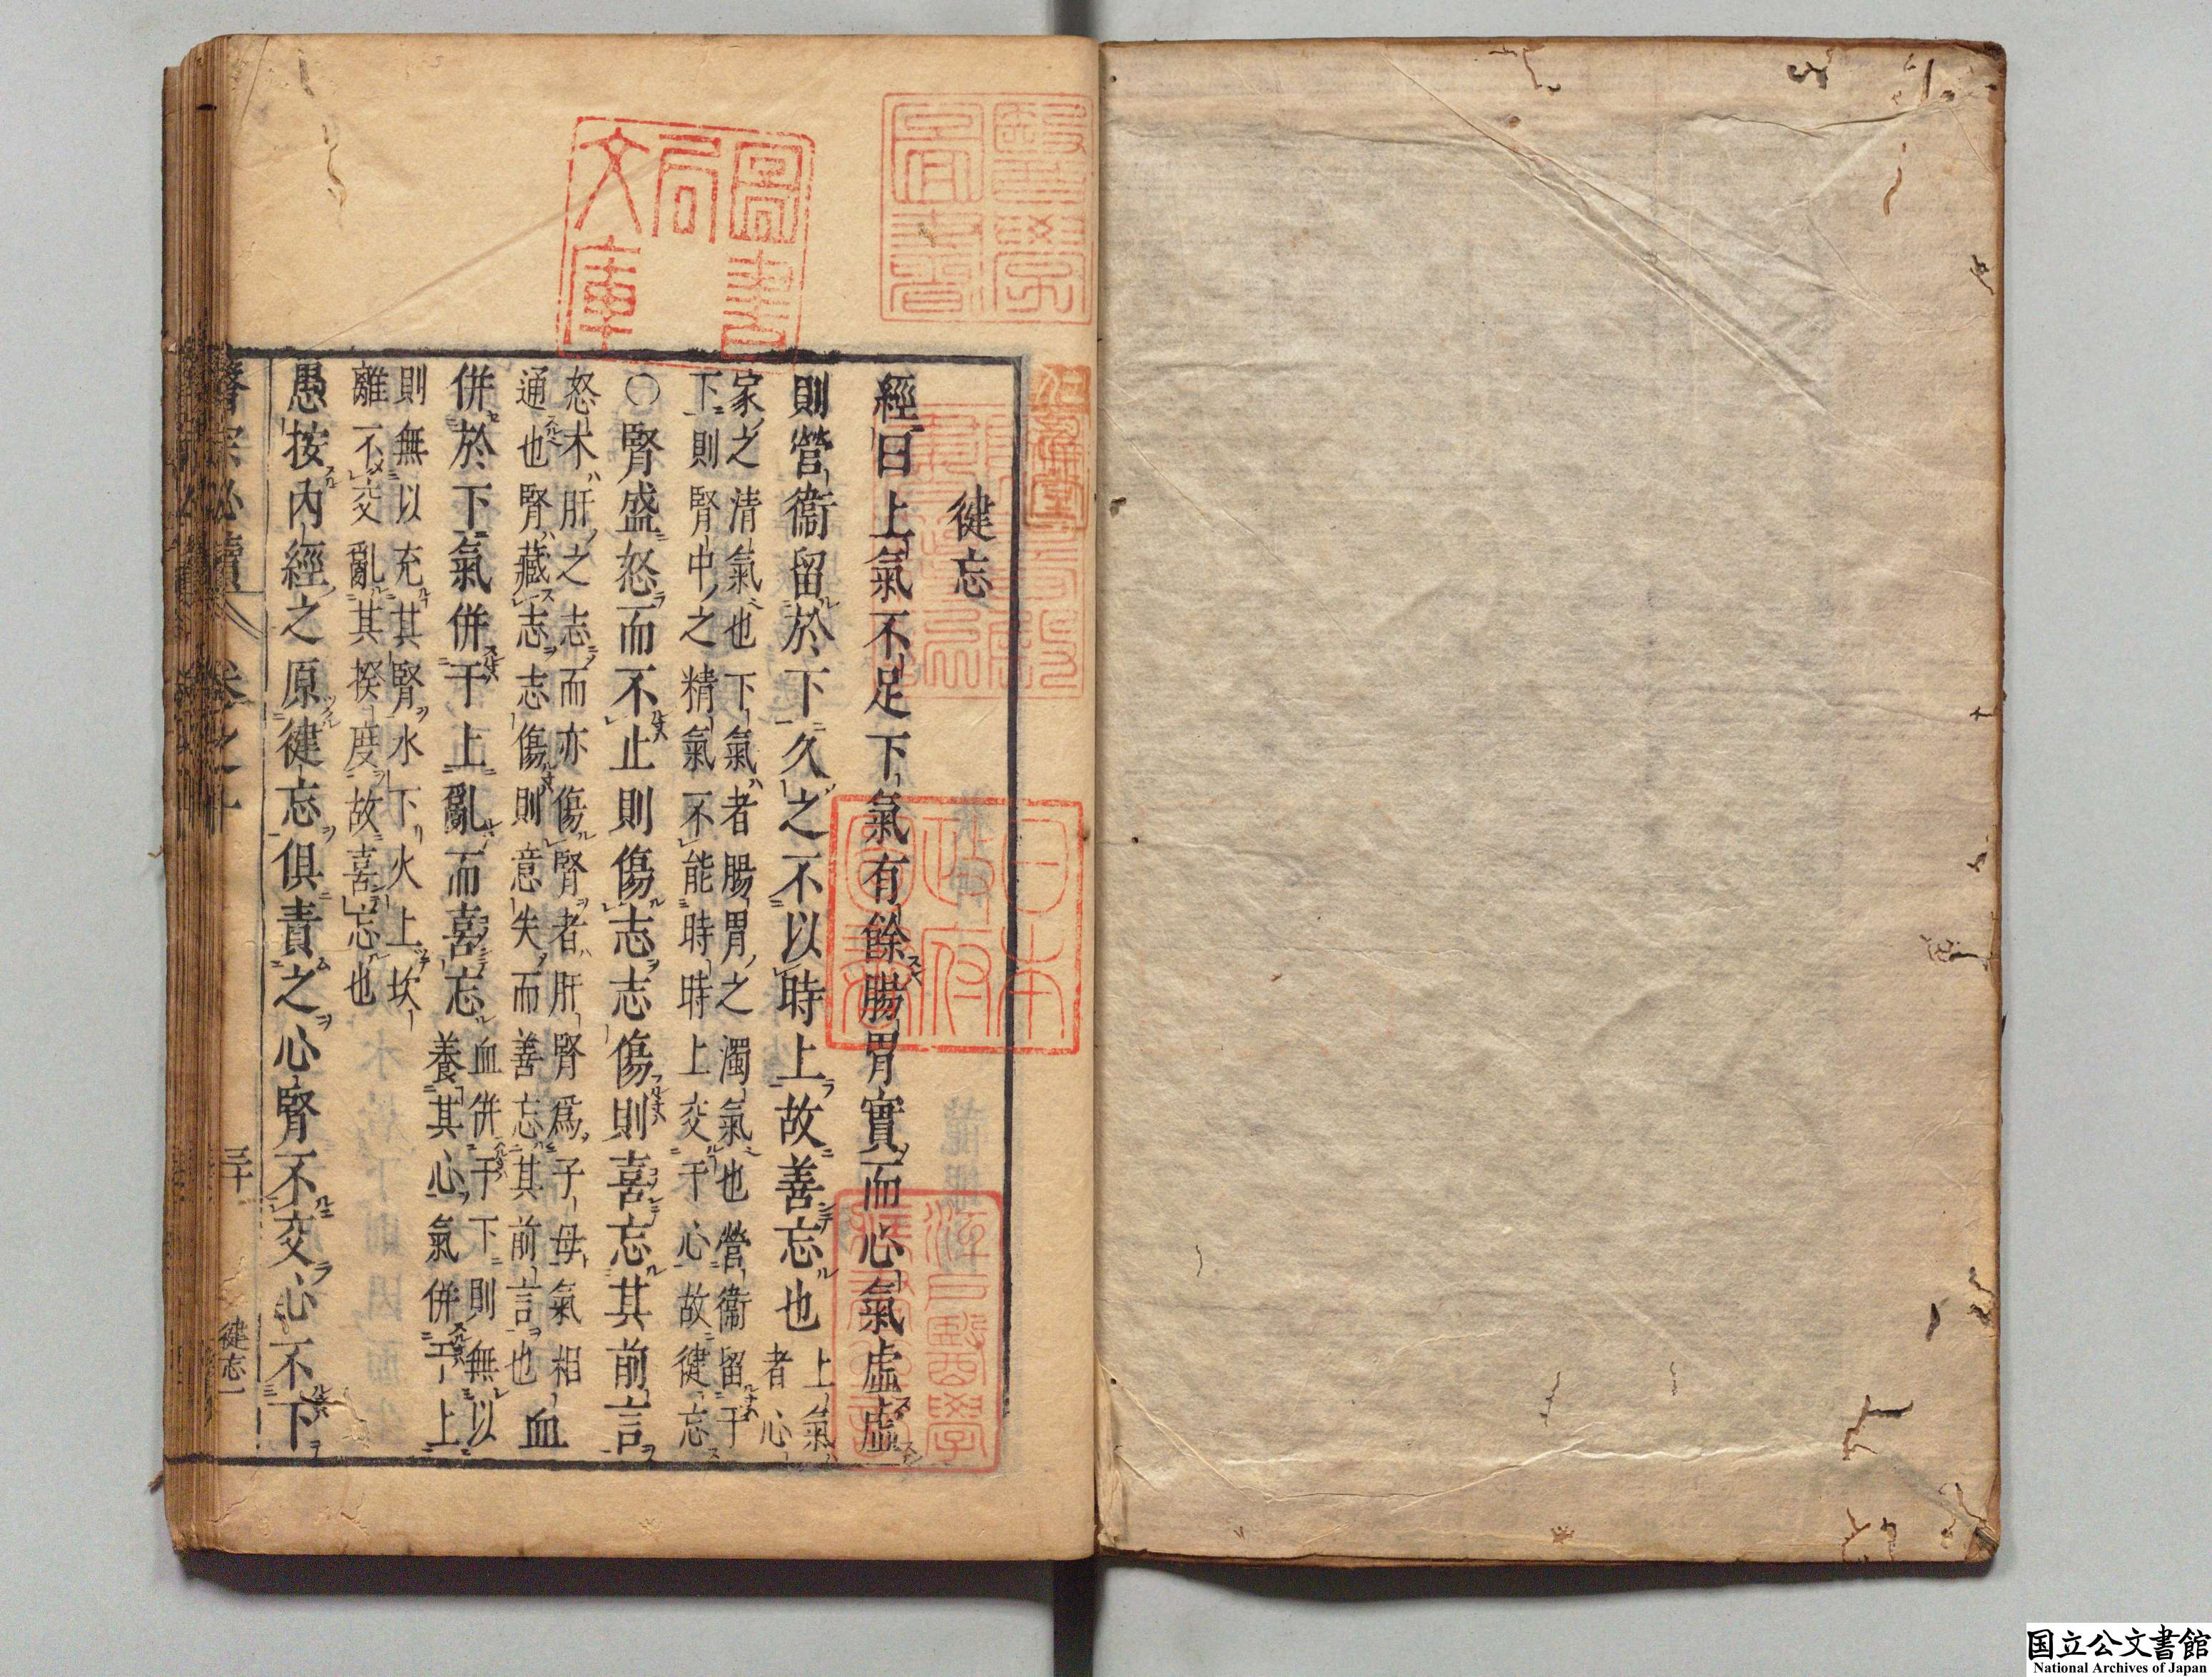 健忘
經曰上氣不足下氣有餘腸胃實而心氣虛虛
則營衞留於下久之不以時上故善忘也
上氣
者心
家之清氣也下氣者腸胃之濁氣也營衞留于
下則腎中之精氣不能時時上交于心故健忘
〇腎盛怒而不止則傷志志傷則喜忘其前言
怒木肝之志而亦傷腎者肝腎爲子母氣相
通也腎藏志志傷則意失而善忘其前言也
血
併於下氣併于上亂而喜忘
血併于下則無以
養其心氣併于上
則無以充其腎水下火上坎
離不交亂其揆度故喜忘也
愚按內經之原健忘俱責之心腎不交心不下
醫宗必讀
卷之十
三十
健忘一
圖書
局
文庫
日本
政府
圖書
國立公文書館
National Archives of Japan